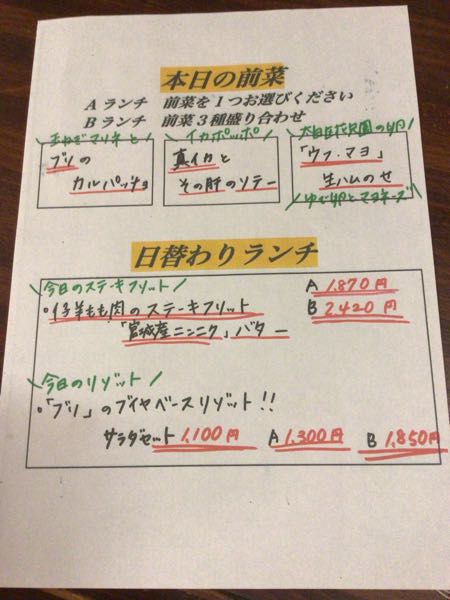 本日の前菜
Aランチ 前菜を1つお選びください
Bランチ 前菜3種盛り合わせ
\玉ねぎマリネと/
ブリの
カルパッチョ
\イカポッポ/
真イカと
その肝のソテー
「ウフ・マヨ」
生ハムのせ
\ゆで卵とマヨネーズ/
日替わりランチ
\今日のステーキフリット/
・仔羊もも肉のステーキフリット
「宮城産ニンニク」バター
A 1,870円
B 2,420円
\今日のリゾット/
・「ブリ」のブイヤベースリゾット!!
サラダセット 1,100円 A 1,300円 B 1,850円